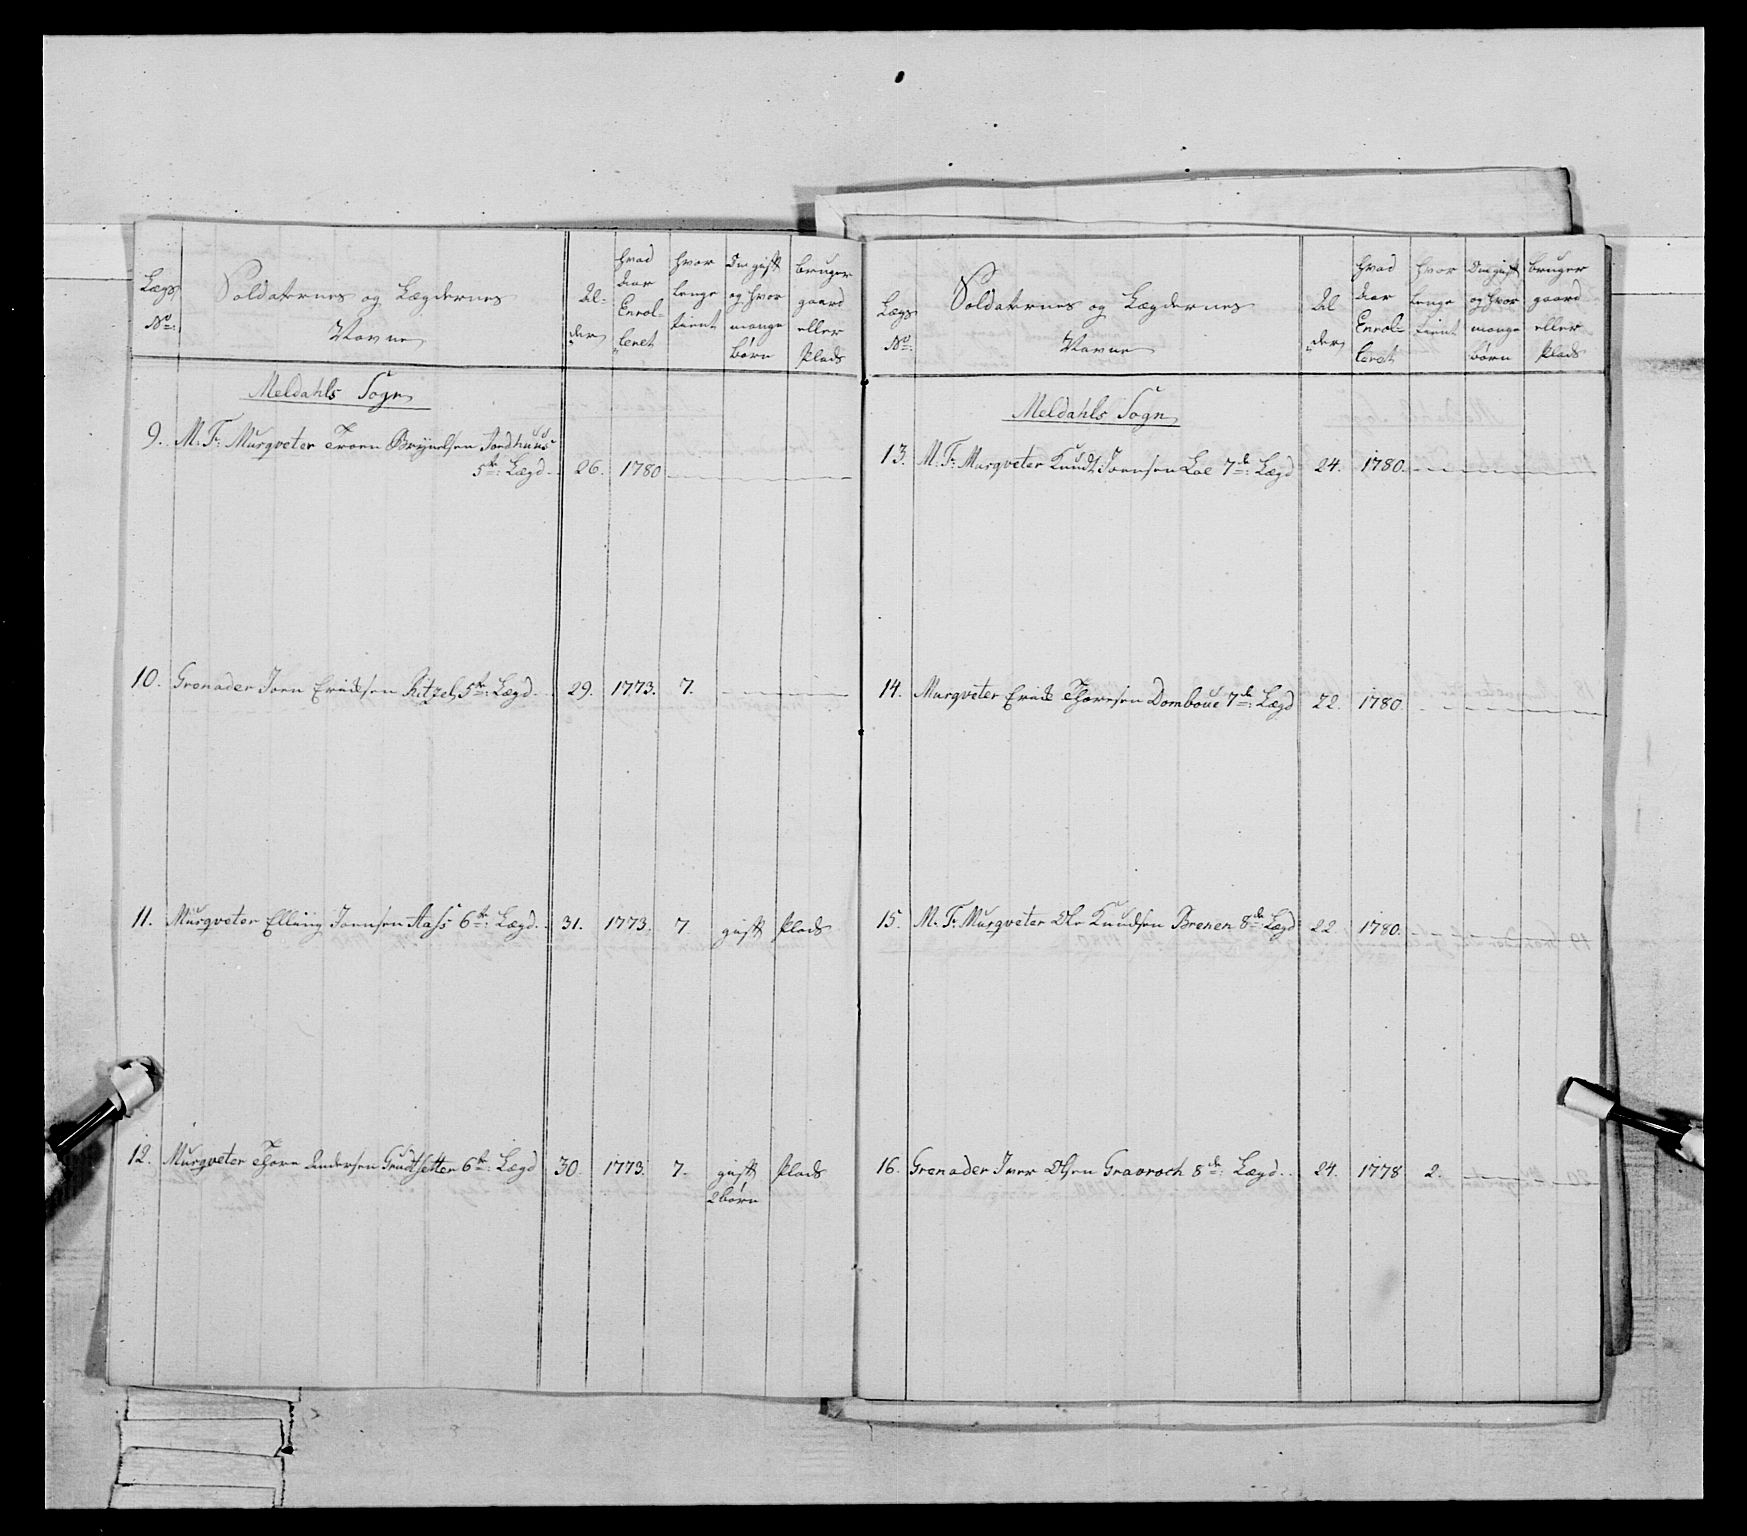 Lægs
No:
Soldaternes og Lægdernes
Navne
Al-
der
hvad
Aar
Enrol-
leret
hvor
lenge
tient
Om gift
og hvor
mange
børn
bruger
gaard
eller
Plads
Meldahls Sogn
9. M. Fr: Musqveter Troen Brynelsen Jordhuus
5te: Lægd. 26. 1780
10. Grenader Joen Ericksen Ritzel 5te: Lægd. 29. 1773. 7.
11. Musqveter Elling Joensen Aass 6te: Lægd. 31. 1773. 7 gift Plads
12. Musqveter Thore Andersen Grudtsetter 6te: Lægd 30. 1773 7. gift Plads
2 børn
Lægs
No:
Soldaternes og Lægdernes
Navne
Al
der
hvad
Aar
Enrol-
leret
hvor
lenge
tient
Om gift
og hvor
mange
børn
bruger
gaard
eller
Plads
Meldahls Sogn
13. M. Fr: Musqveter Knudt Joensen Loe 7de: Lægd 24. 1780.
14. Musqveter Erick Thoresen Domboue 7de: Lægd 22. 1780.
15. M. Fr: Musqveter Ole Knudsen Brenen 8de: Lægd 22 1780.
16. Grenader Iver Olsen Gravroch 8de: Lægd. 24. 1778 2.